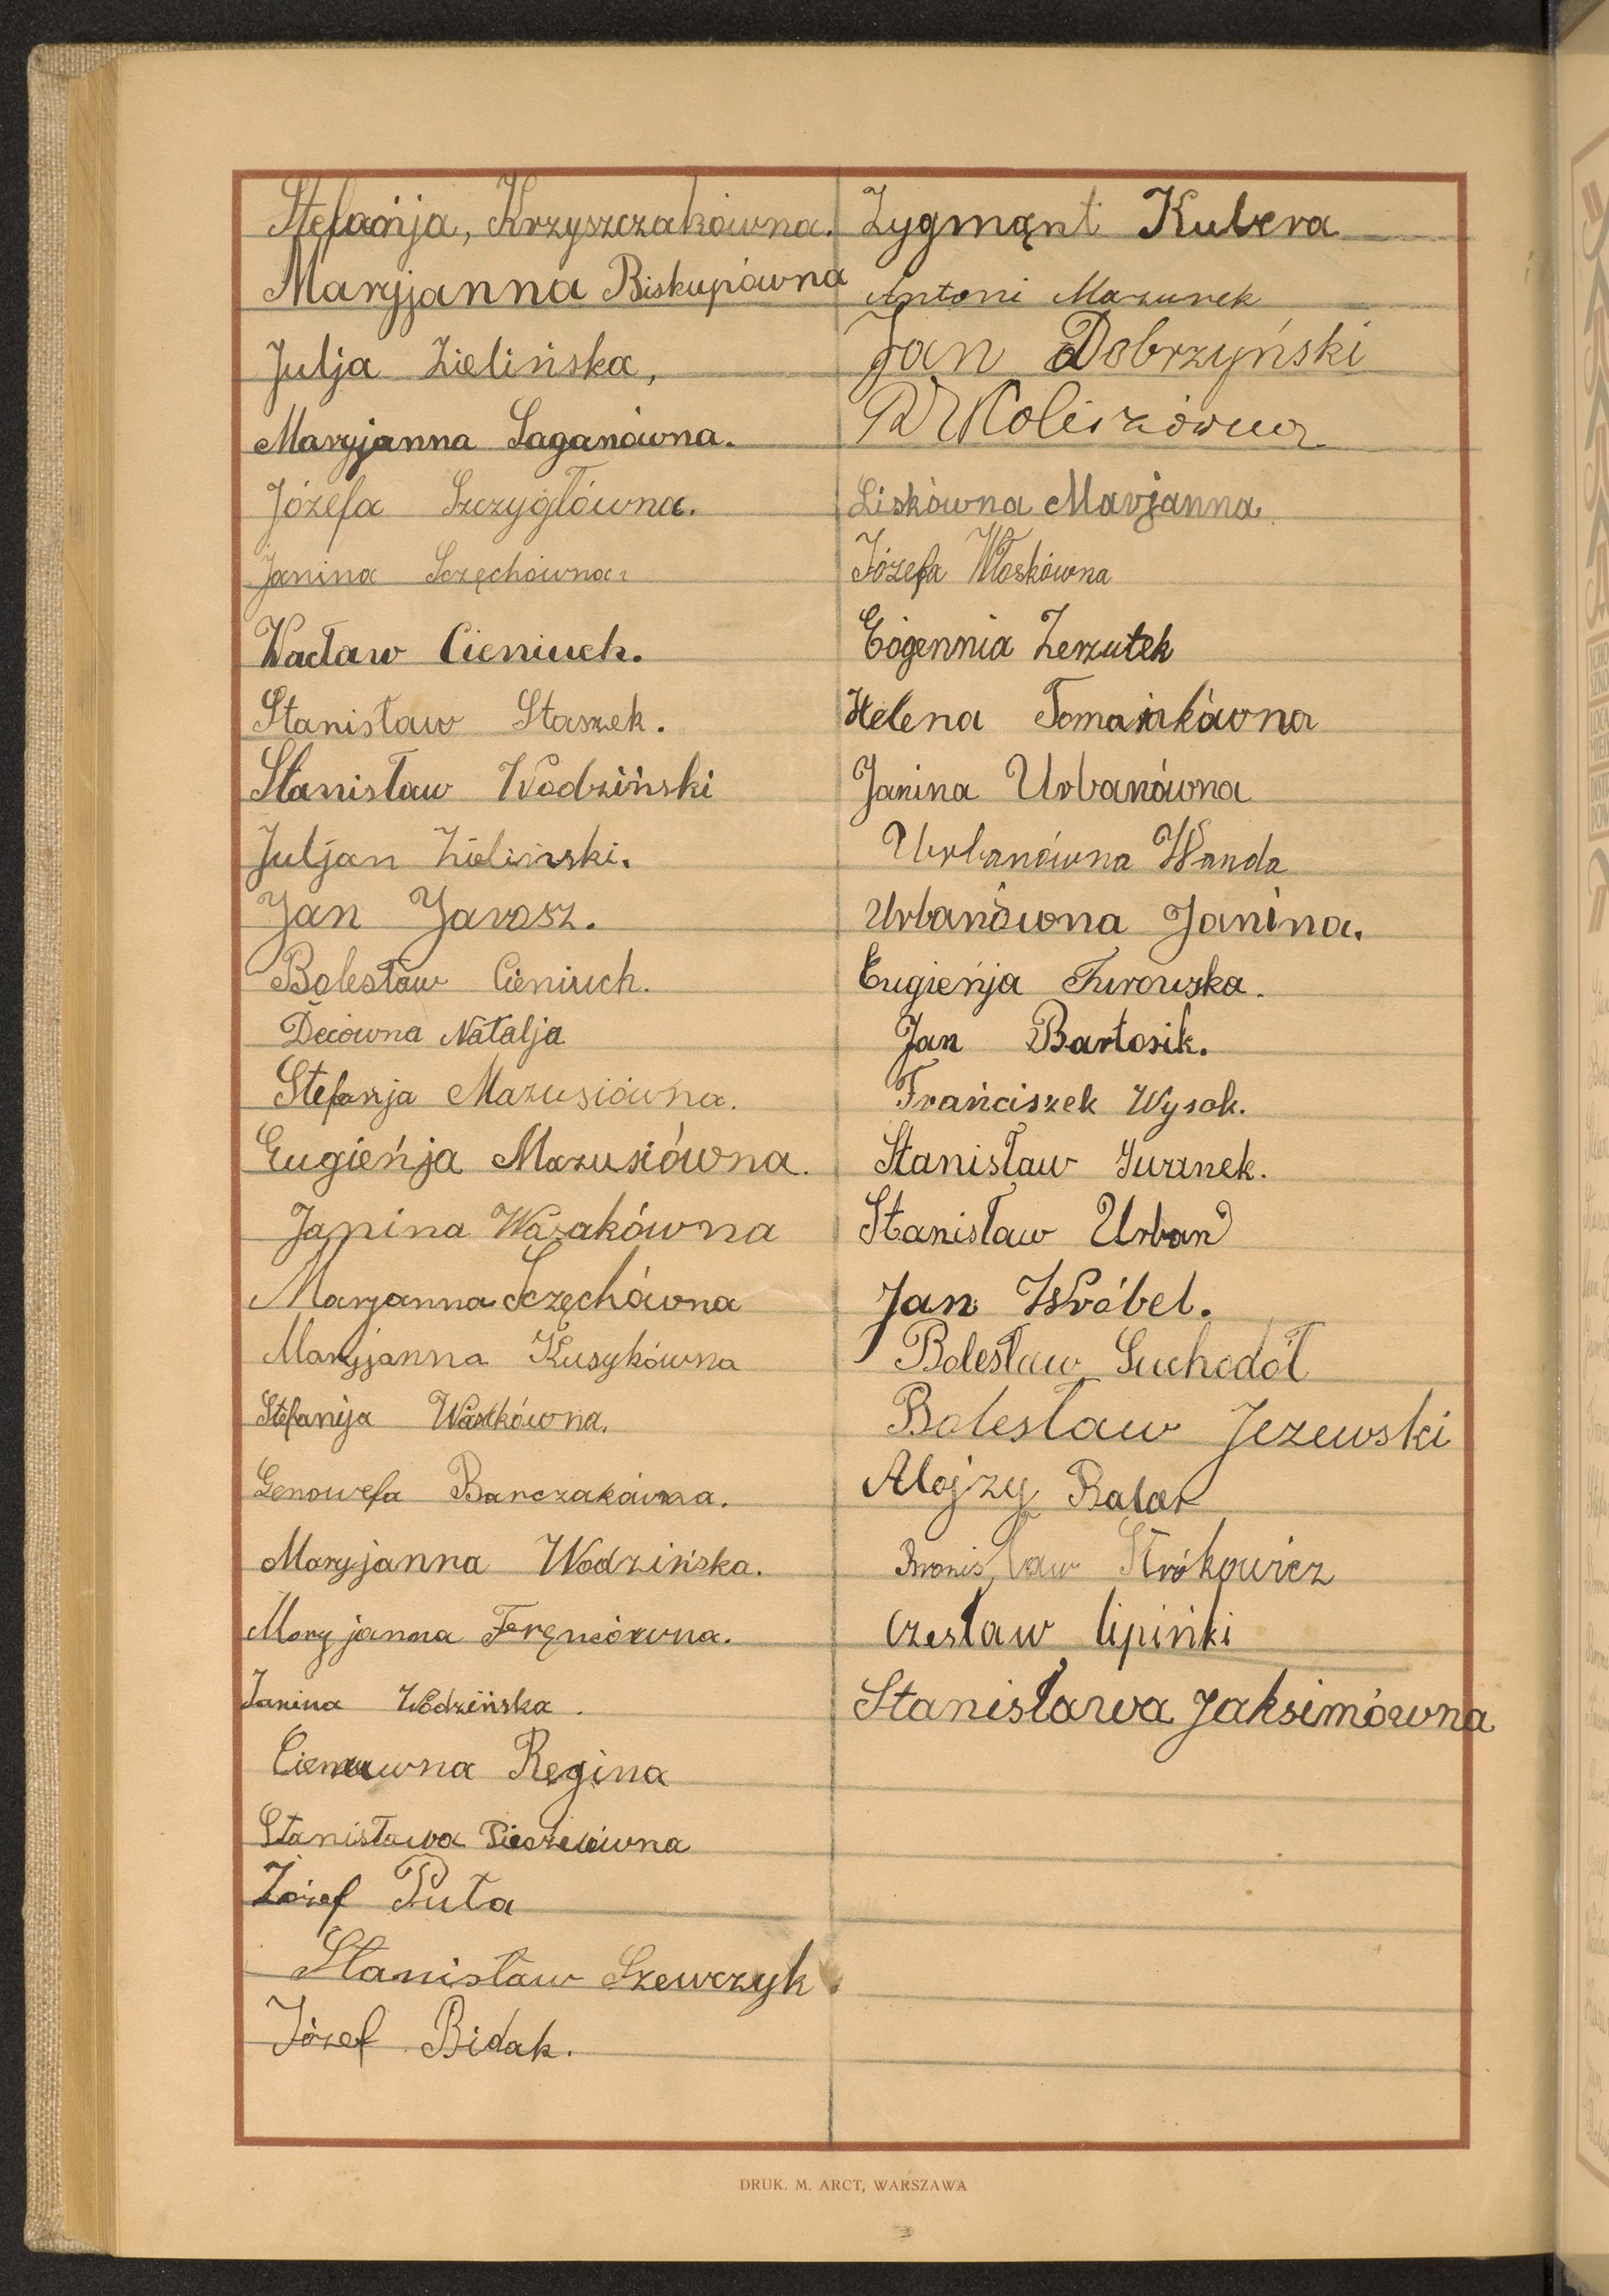 Stefańja, Krzyszczakówna.
Maryjanna Biskupówna
Julja Zielińska,
Maryjanna Saganówna.
Józefa Szczygłówna.
Janina Sczęchówna
Wacław Cieniuch.
Stanisław Staszek.
Stanisław Wodziński
Juljan Zieliński.
Jan Jarosz.
Bolesław Cieniuch.
Decówna Natalja
Stefanja Mazusiówna.
Eugieńja Mazusiówna.
Janina Wasakówna
Marjanna Sczęchówna
Maryjanna Kusykówna
Stefanija Wasikówna.
Genowefa Barczakówna.
Maryjanna Wodzińska.
Maryjanna Feręncówna.
Janina Wodzińska.
Regina
Stanisława
Józef Puta
Stanisław Szewczyk
Józef Bidak.
Zygmąnt Kubera
Antoni Mazurek
Jan Dobrzyński
Liskówna Marjanna
Józefa Włoskówna
Eógennia Zerzutek
Helena
Janina Urbanówna
Urbanówna Wanda
Urbanówna Janina.
Eugieńja Turowska.
Jan Bartosik.
Frańciszek Wysok.
Stanisław Iwanek.
Stanisław Urban
Jan Wróbel.
Bolesław Suchodół
Bolesław Jezewski
Alojzy Balar
Bronisław Strókowicz
Czesław lipińki
Stanisława Jaksimówna
DRUK. M. ARCT, WARSZAWA